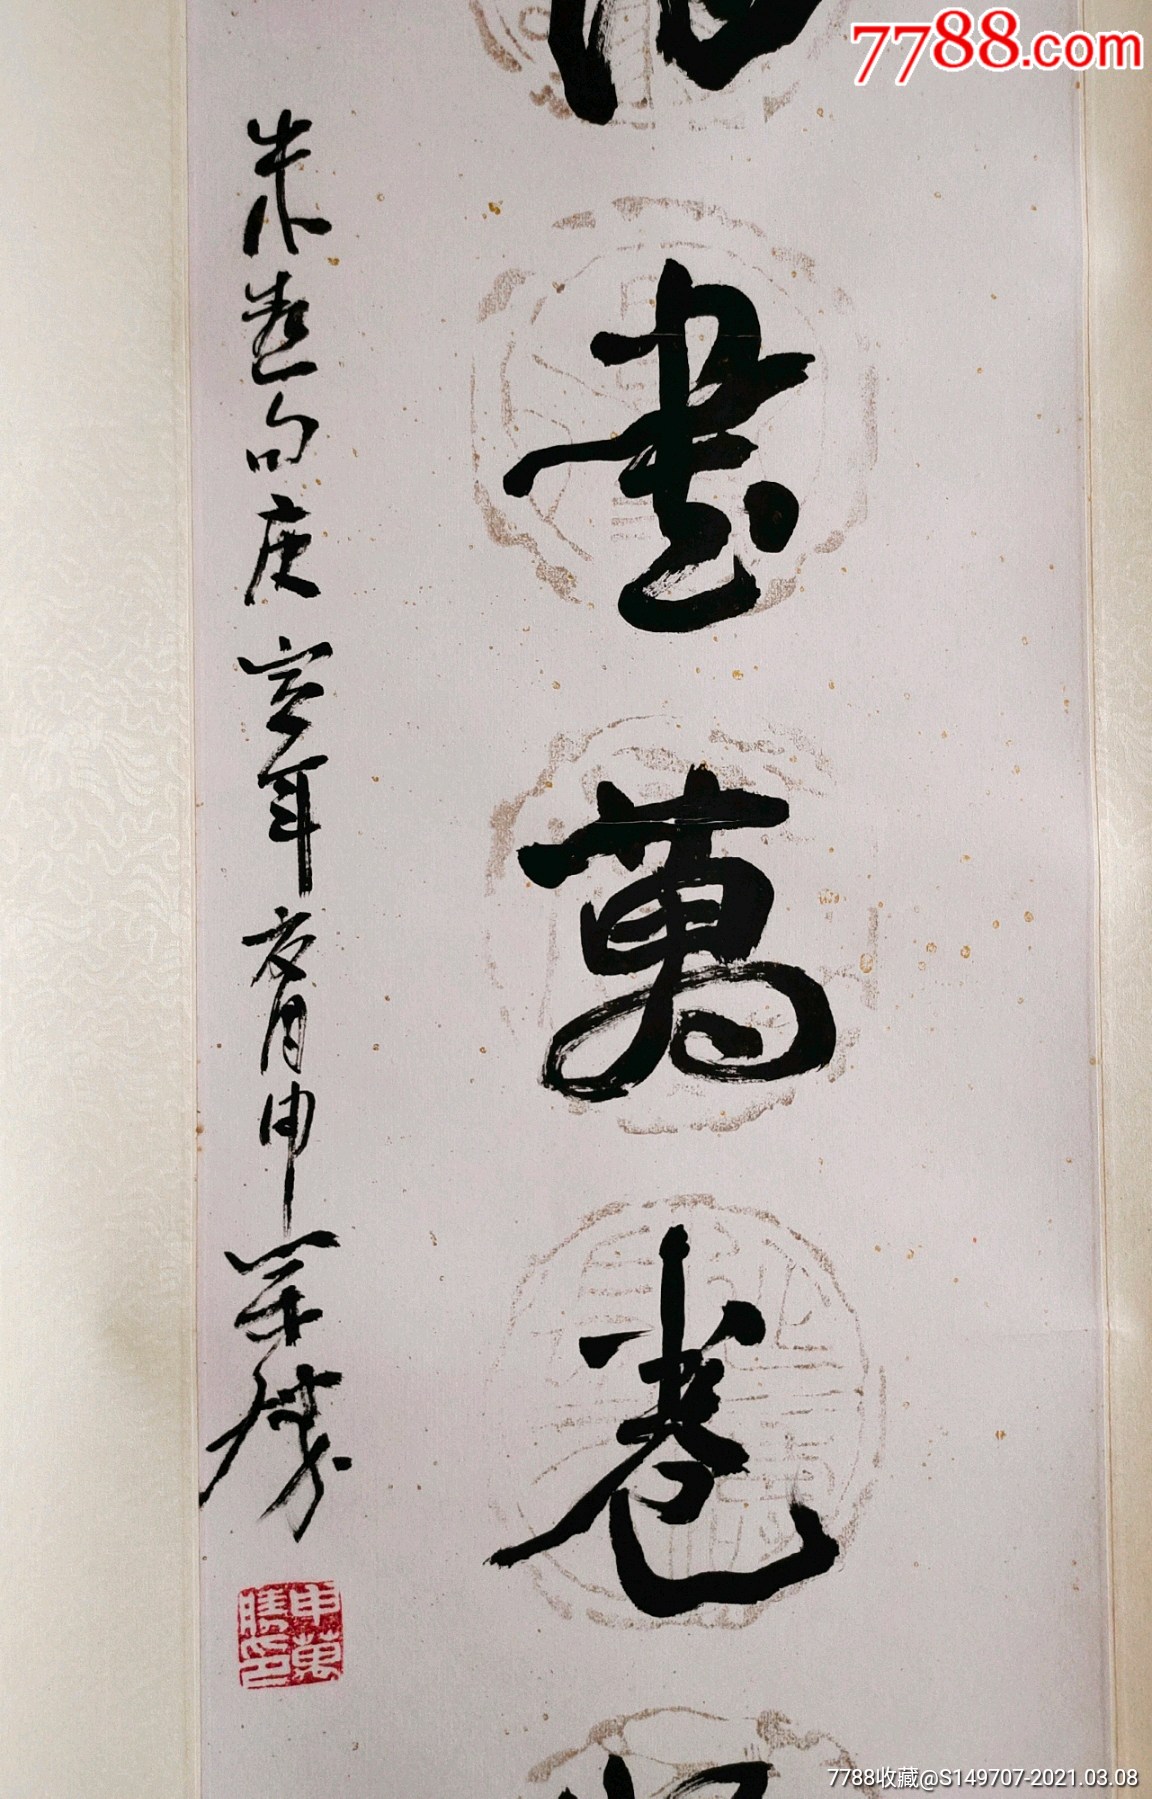 7788.com
書萬卷
朱熹句庚寅年亥月申萬勝
申萬
勝印
7788收藏@S149707-2021.03.08